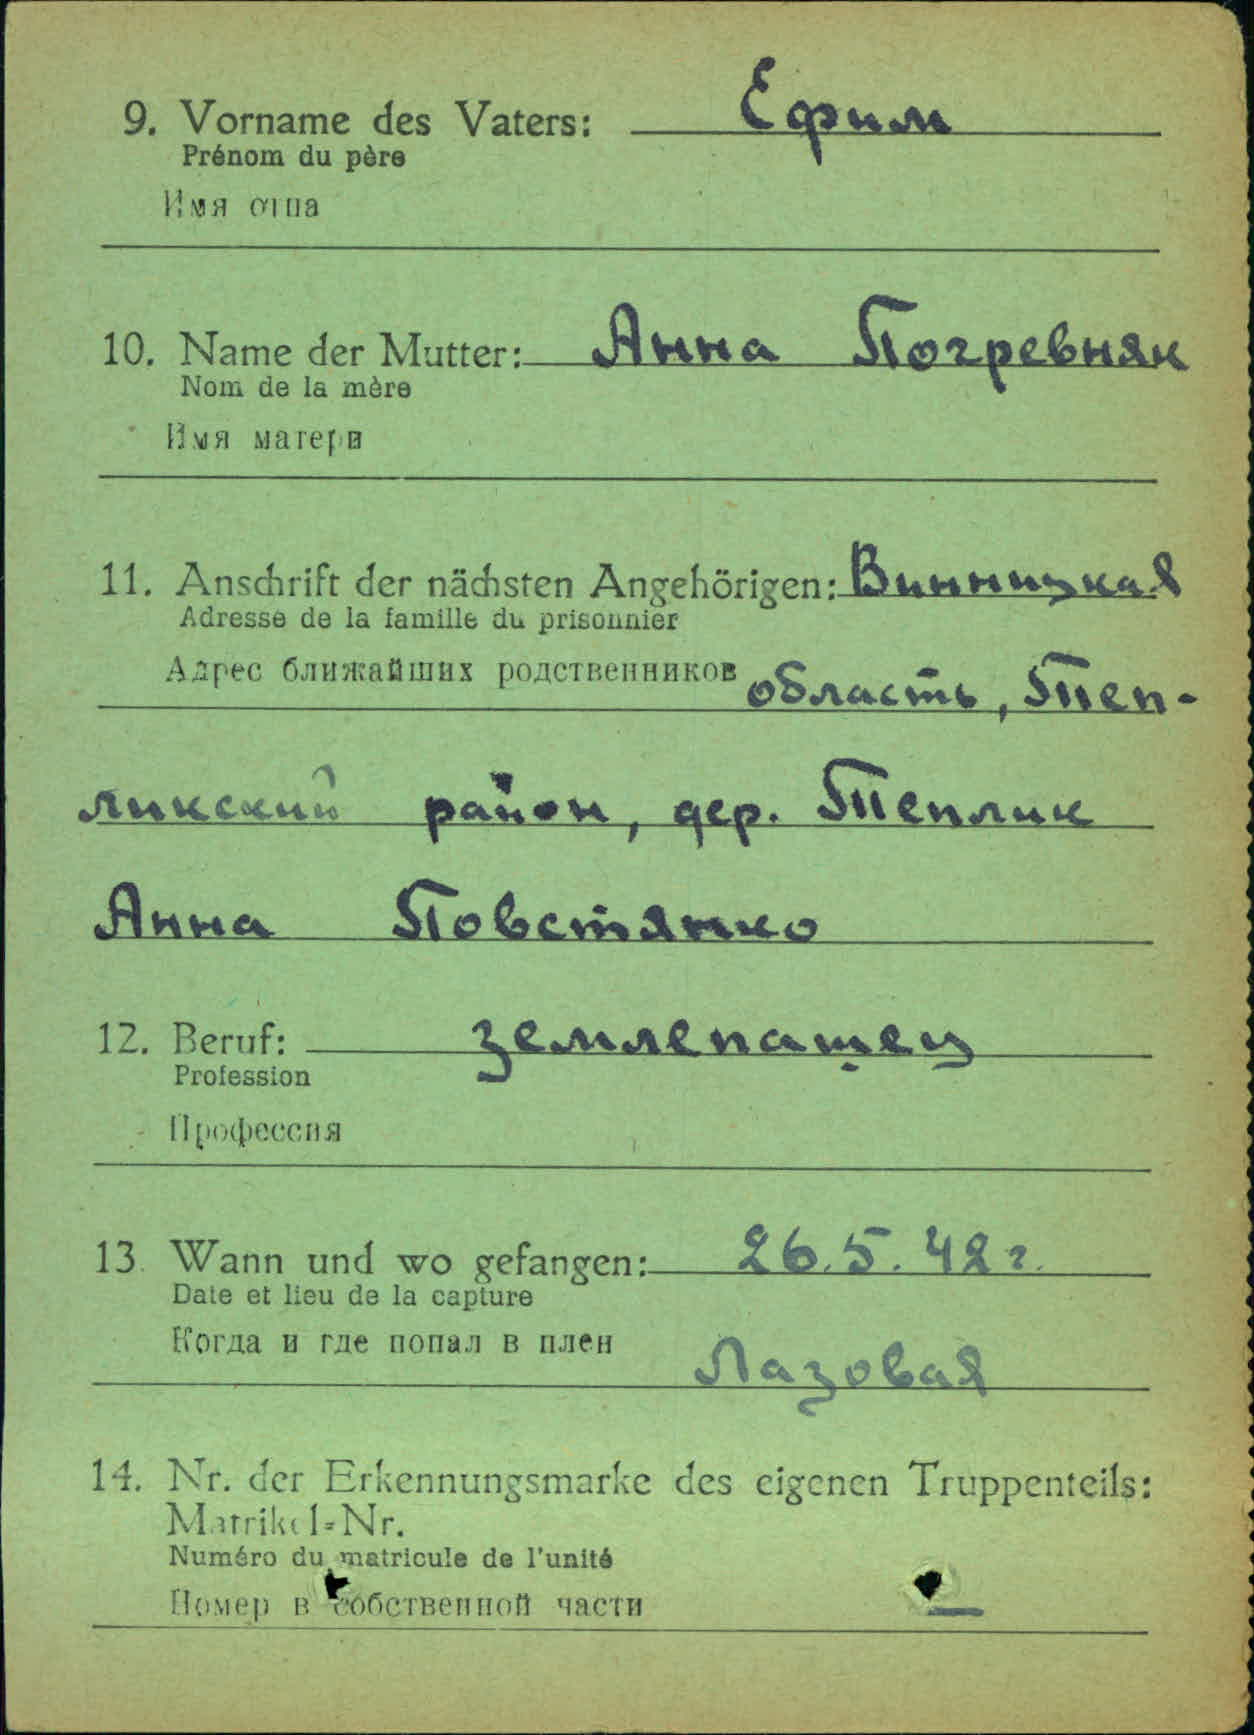 9. Vorname des Vaters: Ефим
Prénom du père
Имя отца
10. Name der Mutter: Анна Погревняк
Nom de la mère
Имя матери
11. Anschrift der nächsten Angehörigen: Винницкая
Adresse de la famille du prisonnier
Адрес ближайших родственников область, Теп-
ликский район, дер. Теплик
Анна Повстянко
12. Beruf: землепашец
Profession
Профессия
13. Wann und wo gefangen: 26.5.42 г.
Date et lieu de la capture
Когда и где попал в плен Лазовая
14. Nr. der Erkennungsmarke des eigenen Truppenteils:
Matrikel-Nr.
Numéro du matricule de l'unité
Номер в собственной части —